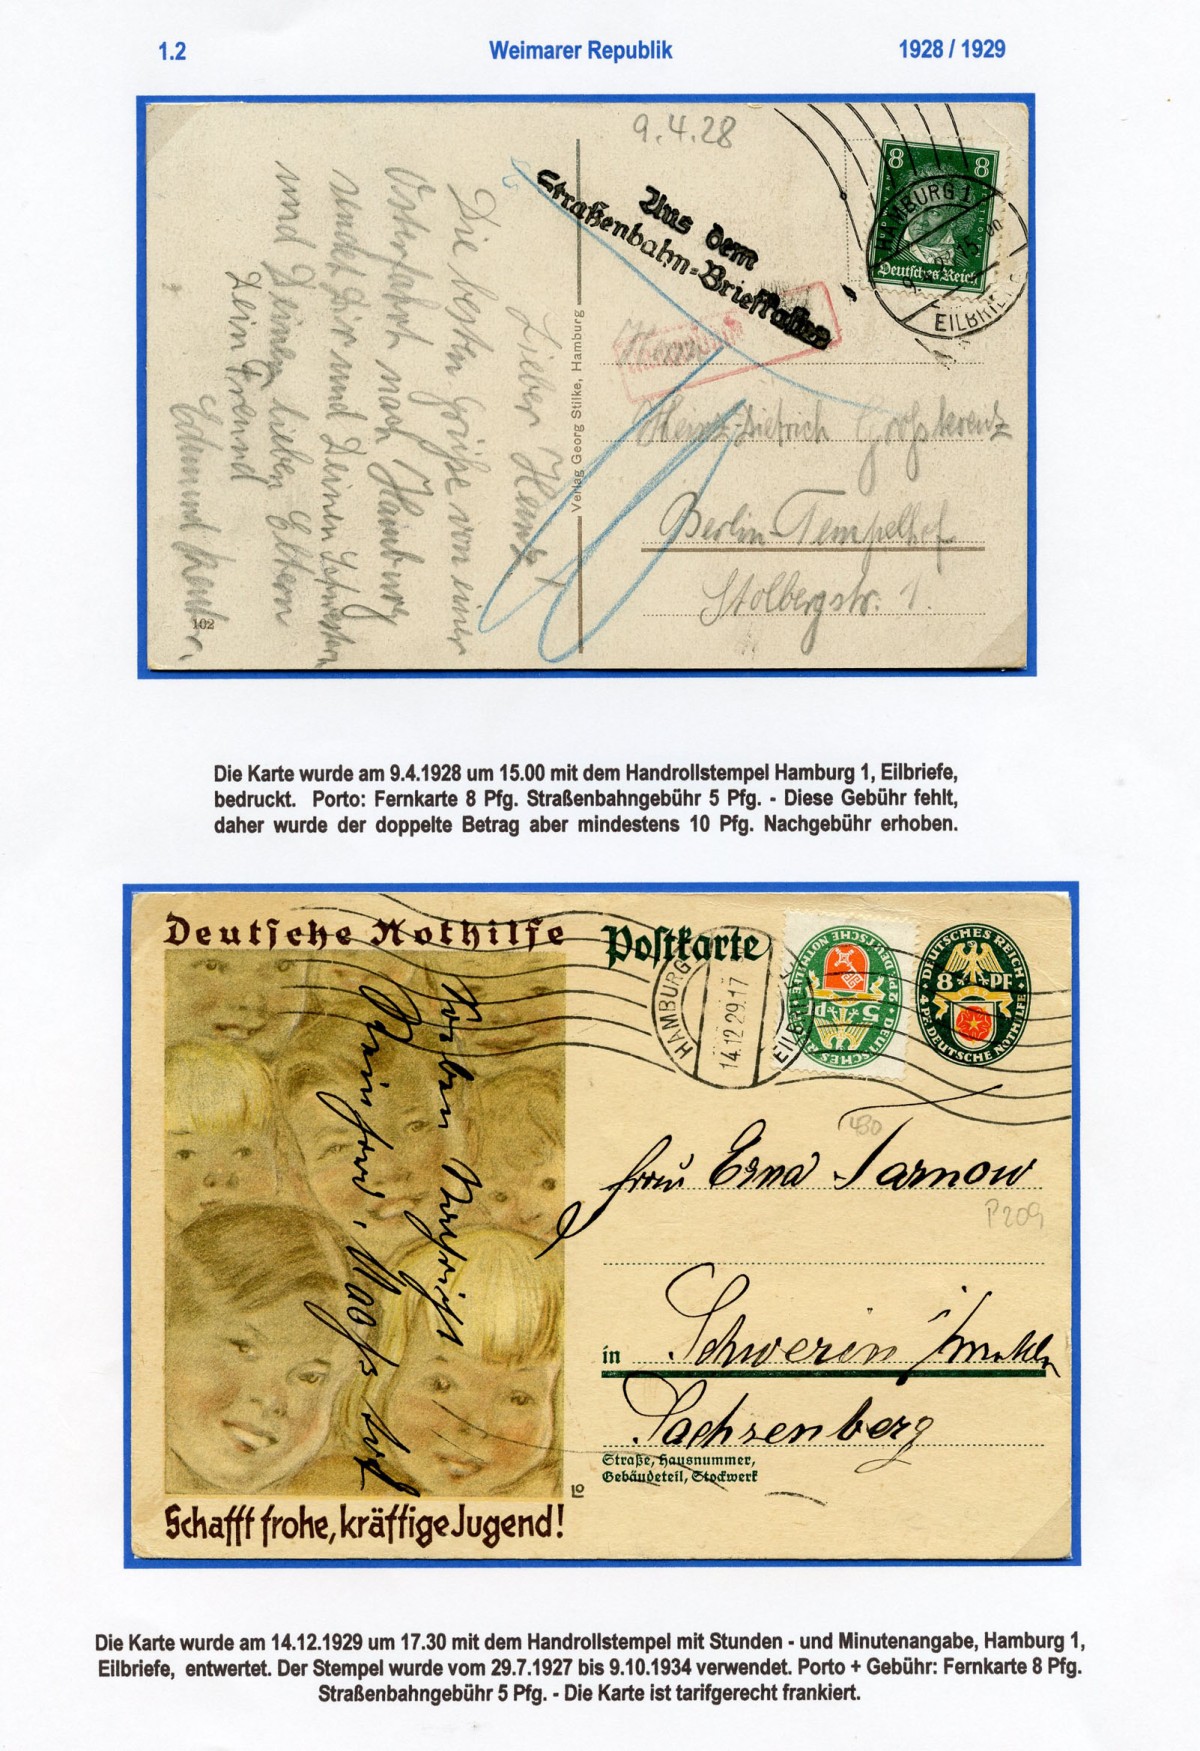 1.2 Weimarer Republik 1928 / 1929
9.4.28
Aus dem
Straßenbahn-Briefkasten
8 8
Deutsches Reich
HAMBURG 1
EILBRIEFE
Lieber Heinz!
Die besten Grüße von einer
Osterfahrt nach Hamburg
sendet Dir und Deinen Schwestern
und Deinen lieben Eltern
Dein Freund
Edmund
102
Verlag Georg Stilke, Hamburg
Heinz-Dietrich Großkreuz
Berlin-Tempelhof
Stolbergstr. 1.
Die Karte wurde am 9.4.1928 um 15.00 mit dem Handrollstempel Hamburg 1, Eilbriefe,
bedruckt. Porto: Fernkarte 8 Pfg. Straßenbahngebühr 5 Pfg. - Diese Gebühr fehlt,
daher wurde der doppelte Betrag aber mindestens 10 Pfg. Nachgebühr erhoben.
Deutsche Nothilfe
Postkarte
HAMBURG
14.12.29.17
EILBRIEFE
DEUTSCHES REICH
5 PF
DEUTSCHE NOTHILFE
DEUTSCHES REICH
8 PF
+ 4 PF DEUTSCHE NOTHILFE
480
Frau Erna Sarnow
P 209
in Schwerin i/Meckln
Sachsenberg
Straße, Hausnummer,
Gebäudeteil, Stockwerk
LO
Schafft frohe, kräftige Jugend!
Die Karte wurde am 14.12.1929 um 17.30 mit dem Handrollstempel mit Stunden - und Minutenangabe, Hamburg 1,
Eilbriefe, entwertet. Der Stempel wurde vom 29.7.1927 bis 9.10.1934 verwendet. Porto + Gebühr: Fernkarte 8 Pfg.
Straßenbahngebühr 5 Pfg. - Die Karte ist tarifgerecht frankiert.